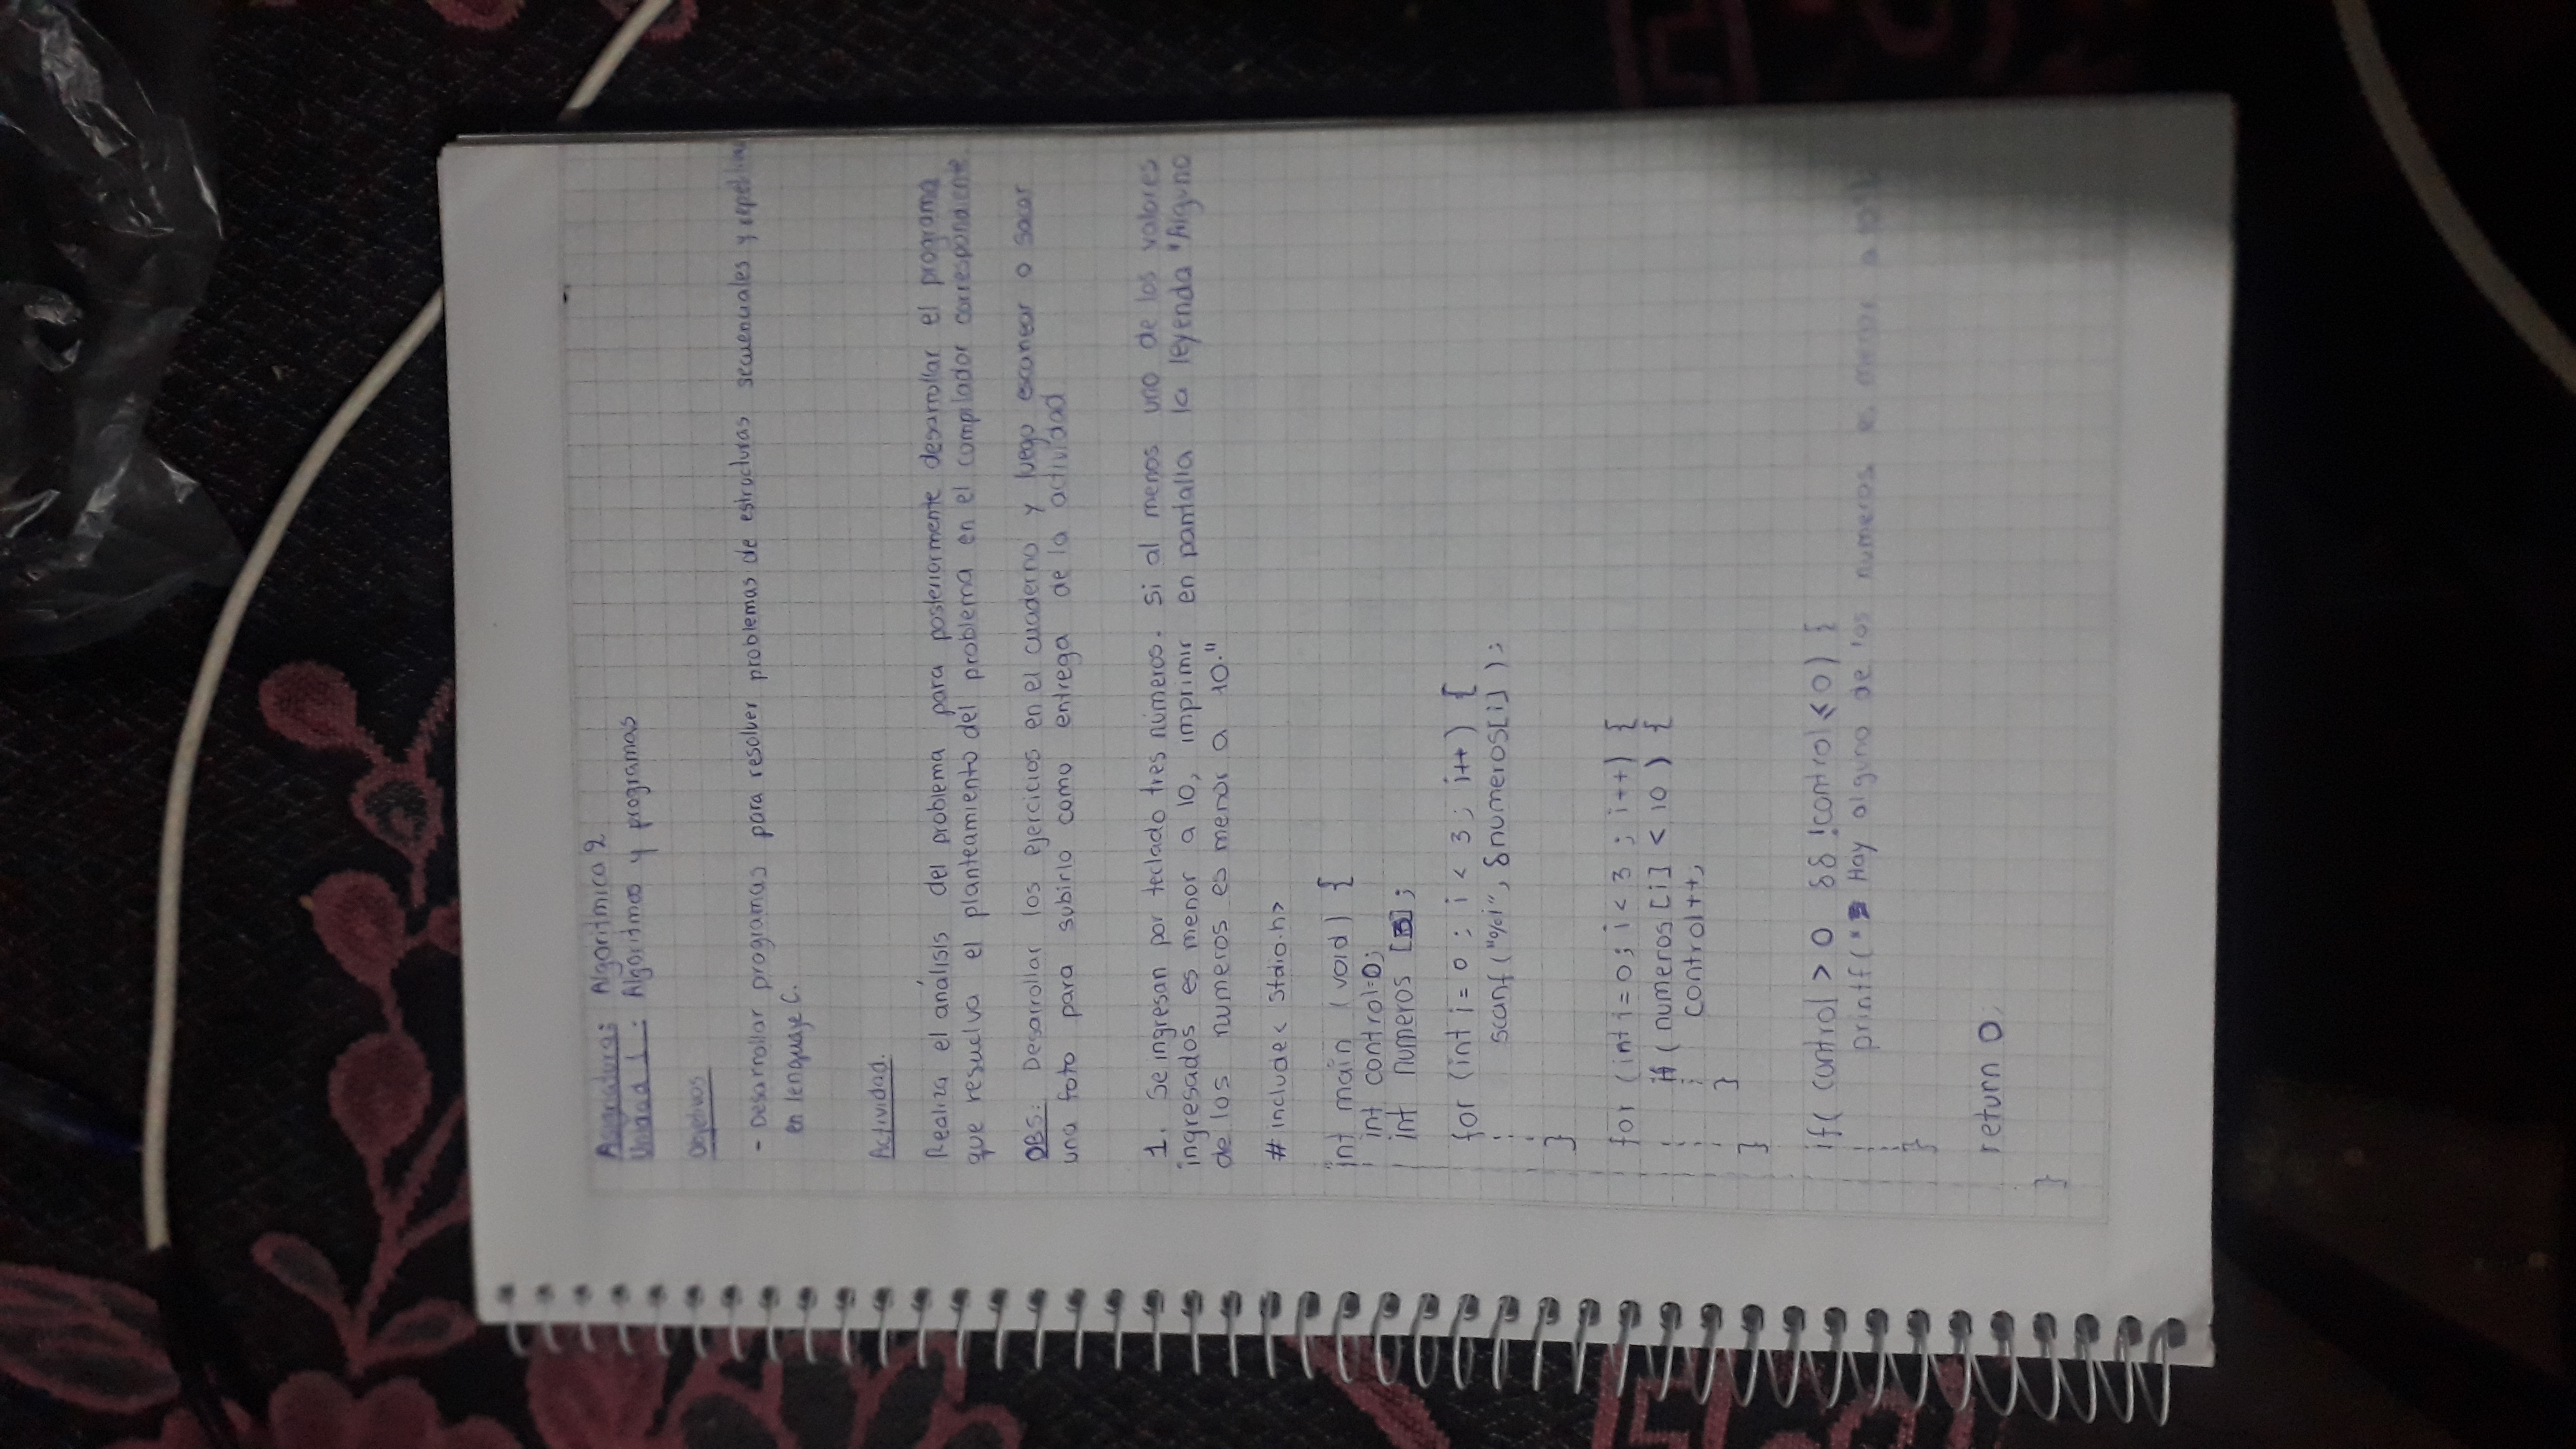 Asignatura: Algoritmica 2
Unidad 1: Algoritmos y programas
Objetivos
- Desarrollar programas para resolver problemas de estructuras secuenciales y
en lenguaje C.
Actividad.
Realiza el análisis del problema para posteriormente desarrollar el programa
que resuelva el planteamiento del problema en el compilador correspondiente.
OBS: Desarrollar los ejercicios en el cuaderno y luego escanear o sacar
una foto para subirlo como entrega de la actividad
1. Se ingresan por teclado tres números. Si al menos uno de los valores
ingresados es menor a 10, imprimir en pantalla la leyenda "Alguno
de los numeros es menor a 10."
#include< stdio.h>
int main (void) {
int control=0;
int numeros [3];
for (int i= 0 ; i < 3 ; i++) {
scanf("%i", &numeros[i] );
}
for (int i=0; i< 3 ; i++) {
if ( numeros [i] < 10 ) {
control++;
}
}
if( control > 0 && !control ≤ 0) {
printf(" Hay alguno de los numeros es menor a
}
return 0;
}